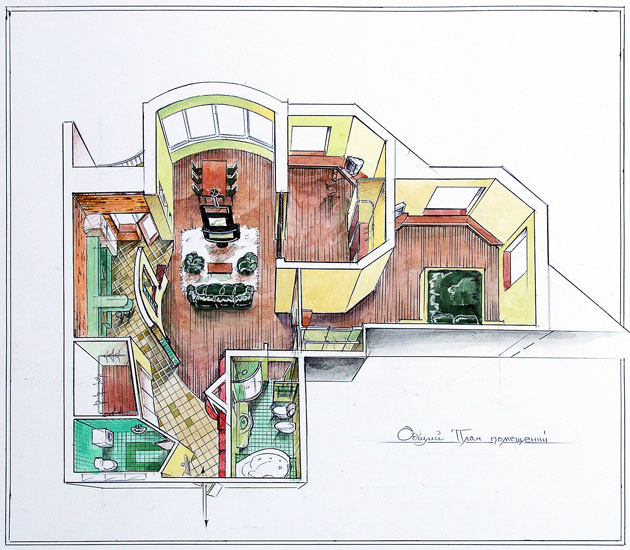 Общий План помещений